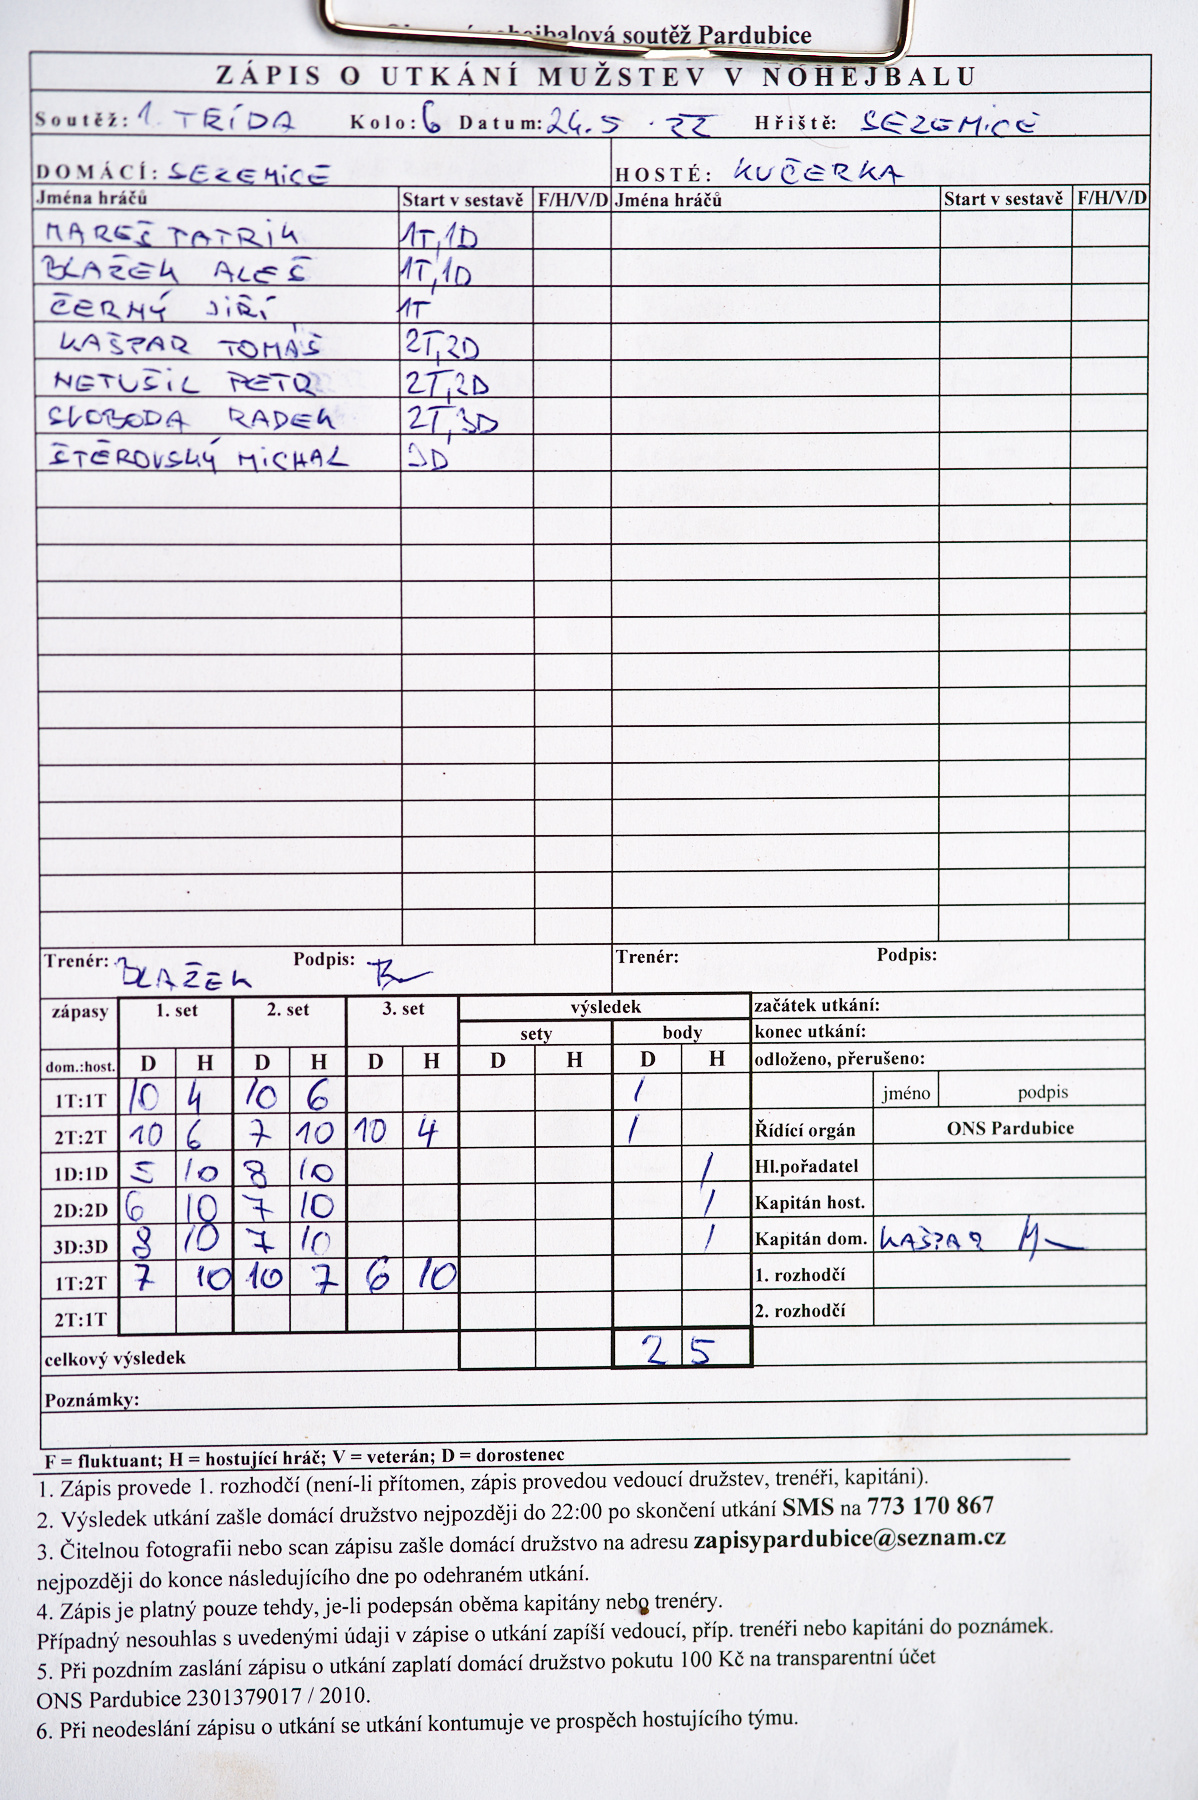 nohejbalová soutěž Pardubice
ZÁPIS O UTKÁNÍ MUŽSTEV V NOHEJBALU
Soutěž: 1. TŘÍDA Kolo: 6 Datum: 24.5.22 Hřiště: SEZEMICE
DOMÁCÍ: SEZEMICE HOSTÉ: KUČERKA
Jména hráčů Start v sestavě F/H/V/D Jména hráčů Start v sestavě F/H/V/D
MAREŠ PATRIK 1T,1D
BLAŽEK ALEŠ 1T,1D
ČERNÝ JIŘÍ 1T
KAŠPAR TOMÁŠ 2T,2D
NETUŠIL PETR 2T,2D
SVOBODA RADEK 2T,3D
ŠTĚROVSKÝ MICHAL 3D
Trenér: BLAŽEK Podpis: Trenér: Podpis:
zápasy 1. set 2. set 3. set výsledek začátek utkání:
sety body konec utkání:
dom.:host. D H D H D H D H D H odloženo, přerušeno:
1T:1T 10 4 10 6 1 jméno podpis
2T:2T 10 6 7 10 10 4 1 Řídící orgán ONS Pardubice
1D:1D 5 10 8 10 1 Hl.pořadatel
2D:2D 6 10 7 10 1 Kapitán host.
3D:3D 8 10 7 10 1 Kapitán dom. KAŠPAR
1T:2T 7 10 10 7 6 10 1. rozhodčí
2T:1T 2. rozhodčí
celkový výsledek 2 5
Poznámky:
F = fluktuant; H = hostující hráč; V = veterán; D = dorostenec
1. Zápis provede 1. rozhodčí (není-li přítomen, zápis provedou vedoucí družstev, trenéři, kapitáni).
2. Výsledek utkání zašle domácí družstvo nejpozději do 22:00 po skončení utkání SMS na 773 170 867
3. Čitelnou fotografii nebo scan zápisu zašle domácí družstvo na adresu zapisypardubice@seznam.cz
nejpozději do konce následujícího dne po odehraném utkání.
4. Zápis je platný pouze tehdy, je-li podepsán oběma kapitány nebo trenéry.
Případný nesouhlas s uvedenými údaji v zápise o utkání zapíší vedoucí, příp. trenéři nebo kapitáni do poznámek.
5. Při pozdním zaslání zápisu o utkání zaplatí domácí družstvo pokutu 100 Kč na transparentní účet
ONS Pardubice 2301379017 / 2010.
6. Při neodeslání zápisu o utkání se utkání kontumuje ve prospěch hostujícího týmu.